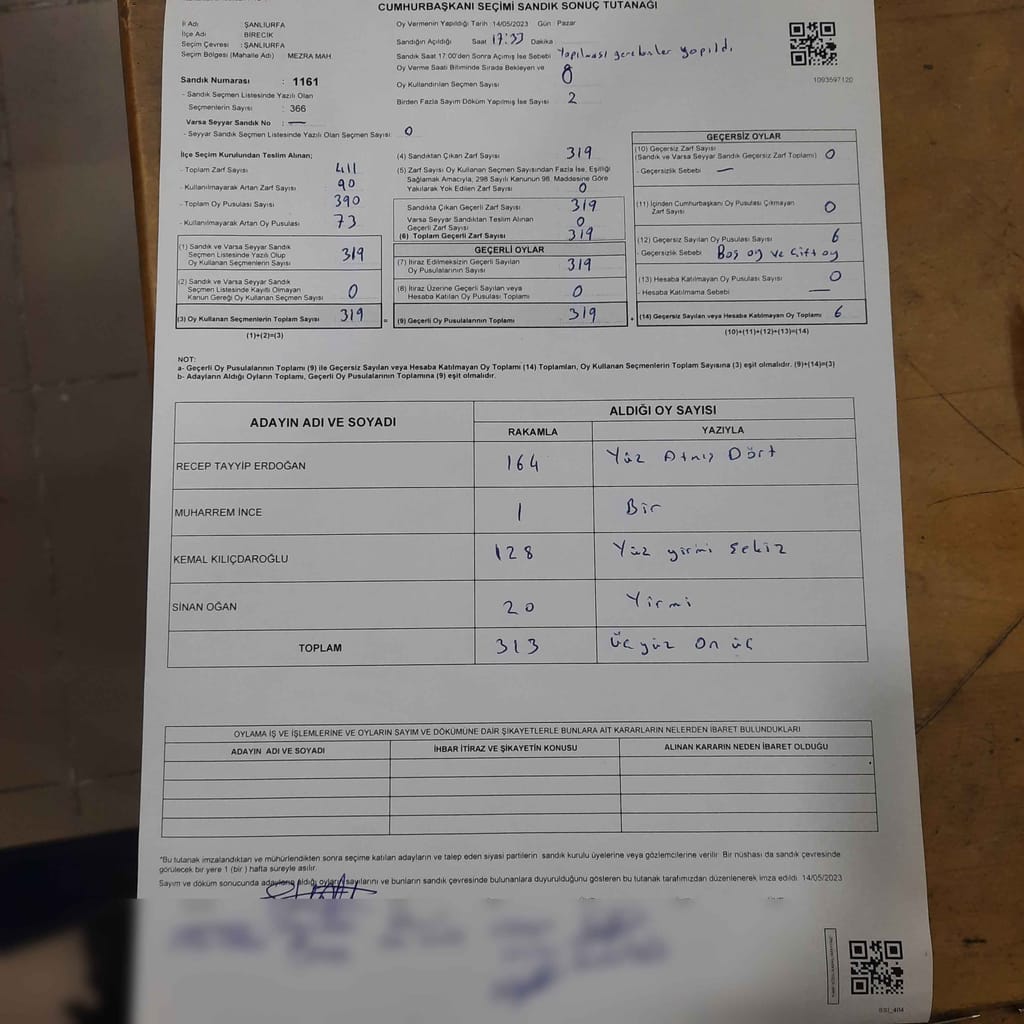 CUMHURBAŞKANI SEÇİMİ SANDIK SONUÇ TUTANAĞI
İl Adı : ŞANLIURFA
İlçe Adı : BİRECİK
Seçim Çevresi : ŞANLIURFA
Seçim Bölgesi (Mahalle Adı) MEZRA MAH.
Sandık Numarası : 1161
- Sandık Seçmen Listesinde Yazılı Olan
Seçmenlerin Sayısı : 366
Varsa Seyyar Sandık No : —
- Seyyar Sandık Seçmen Listesinde Yazılı Olan Seçmen Sayısı: 0
Oy Vermenin Yapıldığı Tarih :14/05/2023 Gün : Pazar
Sandığın Açıldığı Saat 17:33 Dakika
Sandık Saat 17:00'den Sonra Açmış İse Sebebi Yapılması gerekenler yapıldı
Oy Verme Saati Bitiminde Sırada Bekleyen ve
Oy Kullandırılan Seçmen Sayısı 0
Birden Fazla Sayım Döküm Yapılmış İse Sayısı 2
1093597120
İlçe Seçim Kurulundan Teslim Alınan;
- Toplam Zarf Sayısı 411
- Kullanılmayarak Artan Zarf Sayısı 90
- Toplam Oy Pusulası Sayısı 390
- Kullanılmayarak Artan Oy Pusulası 73
(1) Sandık ve Varsa Seyyar Sandık
Seçmen Listesinde Yazılı Olup
Oy Kullanan Seçmenlerin Sayısı 319
(2) Sandık ve Varsa Seyyar Sandık
Seçmen Listesinde Kayıtlı Olmayan
Kanun Gereği Oy Kullanan Seçmen Sayısı 0
(3) Oy Kullanan Seçmenlerin Toplam Sayısı 319 =
(1)+(2)=(3)
(4) Sandıktan Çıkan Zarf Sayısı 319
(5) Zarf Sayısı Oy Kullanan Seçmen Sayısından Fazla İse, Eşitliği
Sağlamak Amacıyla; 298 Sayılı Kanunun 98. Maddesine Göre
Yakılarak Yok Edilen Zarf Sayısı 0
Sandıkta Çıkan Geçerli Zarf Sayısı 319
Varsa Seyyar Sandıktan Teslim Alınan
Geçerli Zarf Sayısı 0
(6) Toplam Geçerli Zarf Sayısı 319
GEÇERLİ OYLAR
(7) İtiraz Edilmeksizin Geçerli Sayılan
Oy Pusulalarının Sayısı 319
(8) İtiraz Üzerine Geçerli Sayılan veya
Hesaba Katılan Oy Pusulası Toplamı 0
(9) Geçerli Oy Pusulalarının Toplamı 319 +
GEÇERSİZ OYLAR
(10) Geçersiz Zarf Sayısı
(Sandık ve Varsa Seyyar Sandık Geçersiz Zarf Toplamı) 0
- Geçersizlik Sebebi —
(11) İçinden Cumhurbaşkanı Oy Pusulası Çıkmayan
Zarf Sayısı 0
(12) Geçersiz Sayılan Oy Pusulası Sayısı 6
- Geçersizlik Sebebi Boş oy ve Çift oy
(13) Hesaba Katılmayan Oy Pusulası Sayısı 0
- Hesaba Katılmama Sebebi —
(14) Geçersiz Sayılan veya Hesaba Katılmayan Oy Toplamı 6
(10)+(11)+(12)+(13)=(14)
NOT:
a- Geçerli Oy Pusulalarının Toplamı (9) ile Geçersiz Sayılan veya Hesaba Katılmayan Oy Toplamı (14) Toplamları, Oy Kullanan Seçmenlerin Toplam Sayısına (3) eşit olmalıdır. (9)+(14)=(3)
b- Adayların Aldığı Oyların Toplamı, Geçerli Oy Pusulalarının Toplamına (9) eşit olmalıdır.
ADAYIN ADI VE SOYADI ALDIĞI OY SAYISI
RAKAMLA YAZIYLA
RECEP TAYYİP ERDOĞAN 164 Yüz Atmış Dört
MUHARREM İNCE 1 Bir
KEMAL KILIÇDAROĞLU 128 Yüz yirmi sekiz
SİNAN OĞAN 20 Yirmi
TOPLAM 313 Üç yüz On üç
OYLAMA İŞ VE İŞLEMLERİNE VE OYLARIN SAYIM VE DÖKÜMÜNE DAİR ŞİKAYETLERLE BUNLARA AİT KARARLARIN NELERDEN İBARET BULUNDUKLARI
ADAYIN ADI VE SOYADI İHBAR İTİRAZ VE ŞİKAYETİN KONUSU ALINAN KARARIN NEDEN İBARET OLDUĞU
*Bu tutanak imzalandıktan ve mühürlendikten sonra seçime katılan adayların ve talep eden siyasi partilerin sandık kurulu üyelerine veya gözlemcilerine verilir. Bir nüshası da sandık çevresinde
görülecek bir yere 1 (bir) hafta süreyle asılır.
Sayım ve döküm sonucunda adayların aldığı oyların sayılarını ve bunların sandık çevresinde bulunanlara duyurulduğunu gösteren bu tutanak tarafımızdan düzenlenerek imza edildi. 14/05/2023